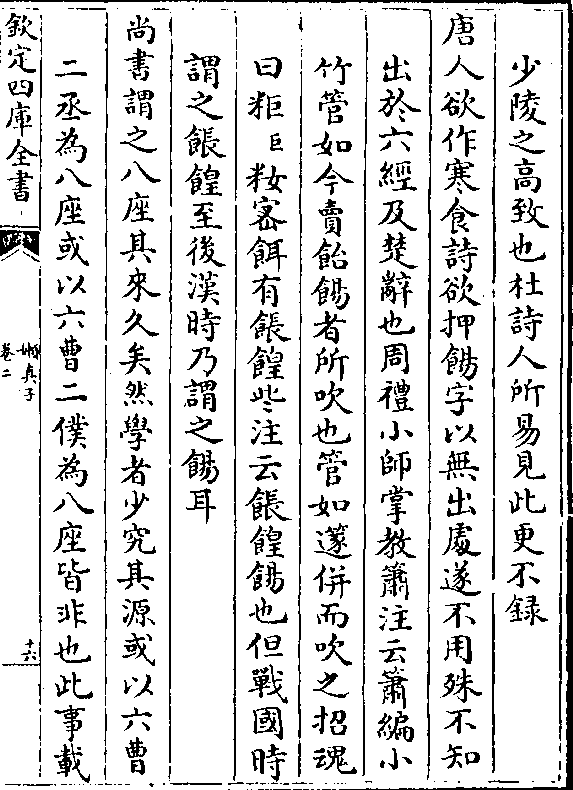 少陵之高致也杜詩人所易見此更不録
唐人欲作寒食詩欲押餳字以無出處遂不用殊不知
出於六經及楚辭也周禮小師掌教簫注云簫編小
竹管如今賣飴餳者所吹也管如篴併而吹之招魂
曰粔巨籹宻餌有餦餭些注云餦餭餳也但戰國時
謂之餦餭至後漢時乃謂之餳耳
尚書謂之八座其來久矣然學者少究其源或以六曹
二丞為八座或以六曹二僕為八座皆非也此事載
欽定四庫全書
嬾真子
卷二
十六